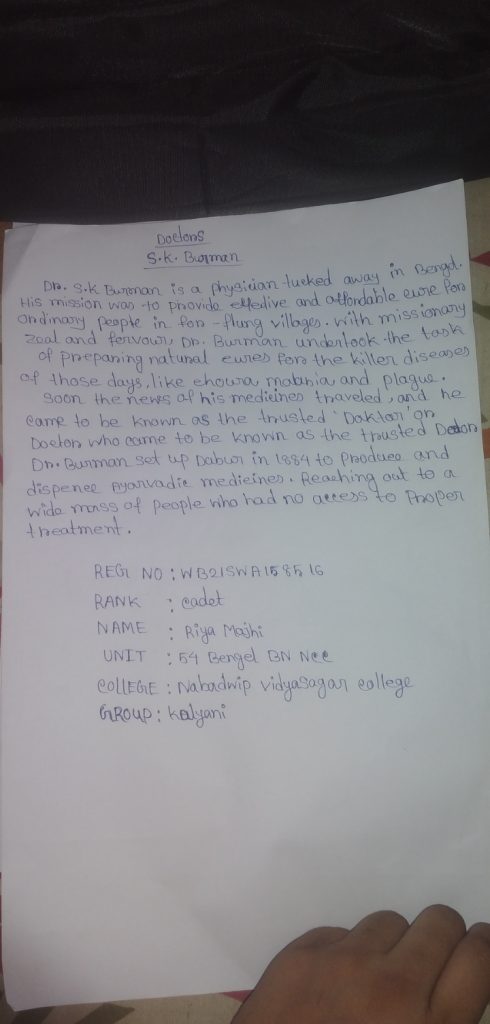 Doctors
S.K. Burman
Dr. S.K Burman is a physician tucked away in Bengal.
His mission was to provide effective and affordable cure for
ordinary people in for-flung villages. with missionary
zeal and fervour, Dr. Burman undertook the task
of preparing natural cures for the killer diseases
of those days, like choura malania and plague.
soon the news of his medicines traveled, and he
came to be known as the trusted 'Daktar' or
Doctor who came to be known as the trusted Doctor
Dr. Burman set up Dabur in 1884 to produce and
dispence Ayarvadic medicines. Reaching out to a
wide mass of people who had no access to proper
treatment.
REGI NO : WB21SWA158516
RANK : cadet
NAME : Riya Majhi
UNIT : 54 Bengel BN Ncc
COllEGE : Nabadwip vidyasagar college
GROUP : kalyani